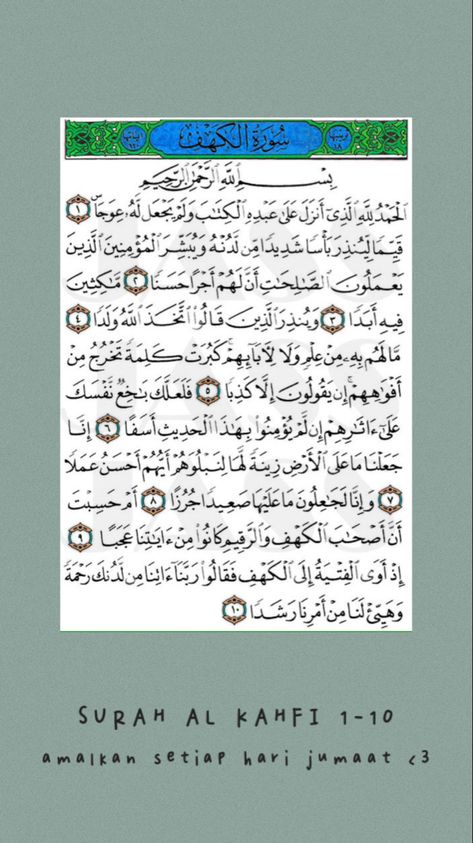 ترتيبها ١٨ سُورَةُ الكَهْفِ آياتها ١١٠
بِسْمِ اللَّهِ الرَّحْمَٰنِ الرَّحِيمِ
الْحَمْدُ لِلَّهِ الَّذِي أَنزَلَ عَلَىٰ عَبْدِهِ الْكِتَٰبَ وَلَمْ يَجْعَل لَّهُۥ عِوَجَاۜ ١
قَيِّمًا لِّيُنذِرَ بَأْسًا شَدِيدًا مِّن لَّدُنْهُ وَيُبَشِّرَ الْمُؤْمِنِينَ الَّذِينَ
يَعْمَلُونَ الصَّٰلِحَٰتِ أَنَّ لَهُمْ أَجْرًا حَسَنًا ٢ مَّٰكِثِينَ
فِيهِ أَبَدًا ٣ وَيُنذِرَ الَّذِينَ قَالُوا۟ اتَّخَذَ اللَّهُ وَلَدًا ٤
مَّا لَهُم بِهِۦ مِنْ عِلْمٍ وَلَا لِءَابَآئِهِمْ ۚ كَبُرَتْ كَلِمَةً تَخْرُجُ مِنْ
أَفْوَٰهِهِمْ ۚ إِن يَقُولُونَ إِلَّا كَذِبًا ٥ فَلَعَلَّكَ بَٰخِعٌ نَّفْسَكَ
عَلَىٰٓ ءَاثَٰرِهِمْ إِن لَّمْ يُؤْمِنُوا۟ بِهَٰذَا الْحَدِيثِ أَسَفًا ٦ إِنَّا
جَعَلْنَا مَا عَلَى الْأَرْضِ زِينَةً لَّهَا لِنَبْلُوَهُمْ أَيُّهُمْ أَحْسَنُ عَمَلًا
٧ وَإِنَّا لَجَٰعِلُونَ مَا عَلَيْهَا صَعِيدًا جُرُزًا ٨ أَمْ حَسِبْتَ
أَنَّ أَصْحَٰبَ الْكَهْفِ وَالرَّقِيمِ كَانُوا۟ مِنْ ءَايَٰتِنَا عَجَبًا ٩
إِذْ أَوَى الْفِتْيَةُ إِلَى الْكَهْفِ فَقَالُوا۟ رَبَّنَآ ءَاتِنَا مِن لَّدُنكَ رَحْمَةً
وَهَيِّئْ لَنَا مِنْ أَمْرِنَا رَشَدًا ١٠
SURAH AL KAHFI 1-10
amalkan setiap hari jumaat <3